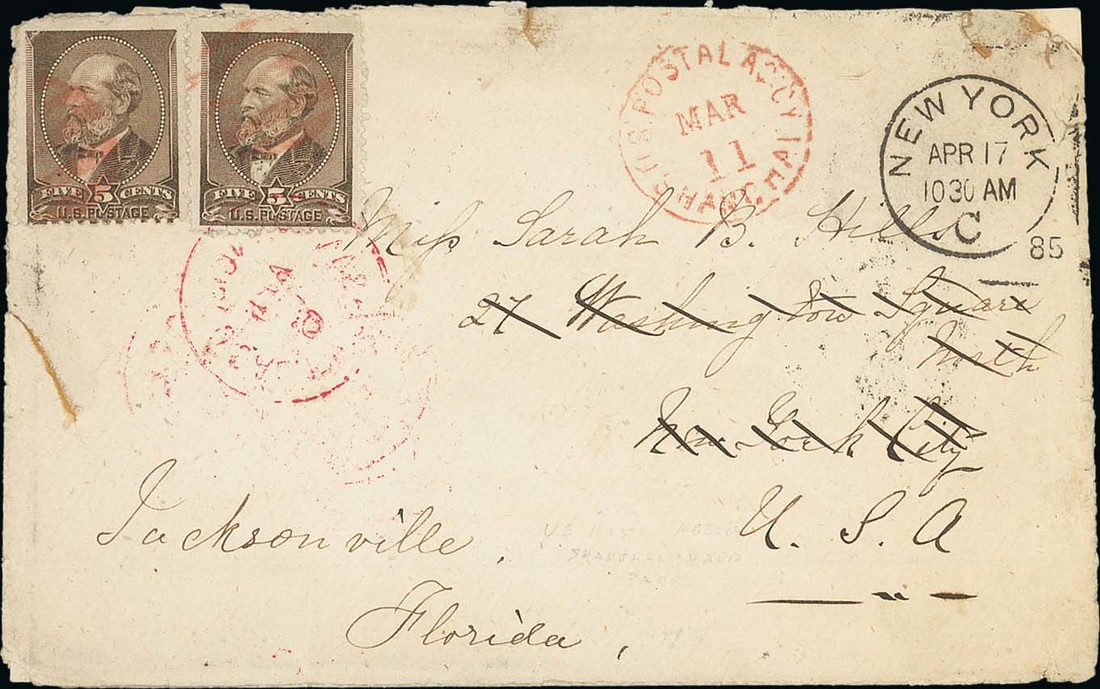 FIVE 5 CENTS
U.S. POSTAGE
FIVE 5 CENTS
U.S. POSTAGE
U.S. POSTAL AGCY
MAR
11
SHANGHAI
NEW YORK
APR 17
10 30 AM
C
85
Miss Sarah B. Hills
27 Washington Square
North
New York City
U. S. A
Jacksonville,
Florida,
SHANGHAI